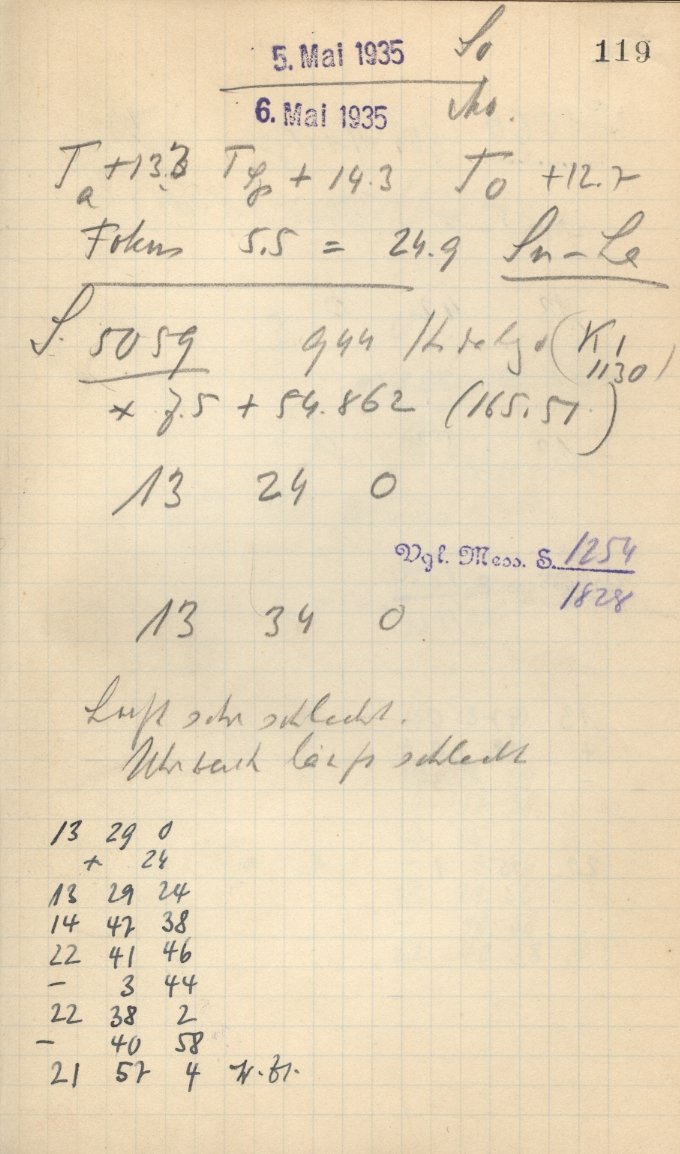 119
5. Mai 1935 So
6. Mai 1935 Mo.
Ta +13.3 TSp + 14.3 TO +12.7
Fokus 5.5 = 24.9
S. 5059 944 Hidalgo (K1 1130)
* 7.5 + 54.862 (165.51)
13 24 0
Vgl. Mess. S. 1254
1828
13 34 0
Luft sehr schlecht.
Uhrwerk läuft schlecht
13 29 0
+ 24
13 29 24
14 47 38
22 41 46
- 3 44
22 38 2
- 40 58
21 57 4